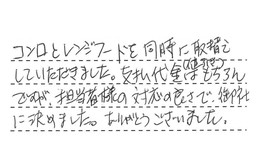 コンロとレンジフードを同時に取替え
していただきました。支払代金はもちろん
ですが、担当者様の対応の良さで、御社
に決めました。ありがとうございました。